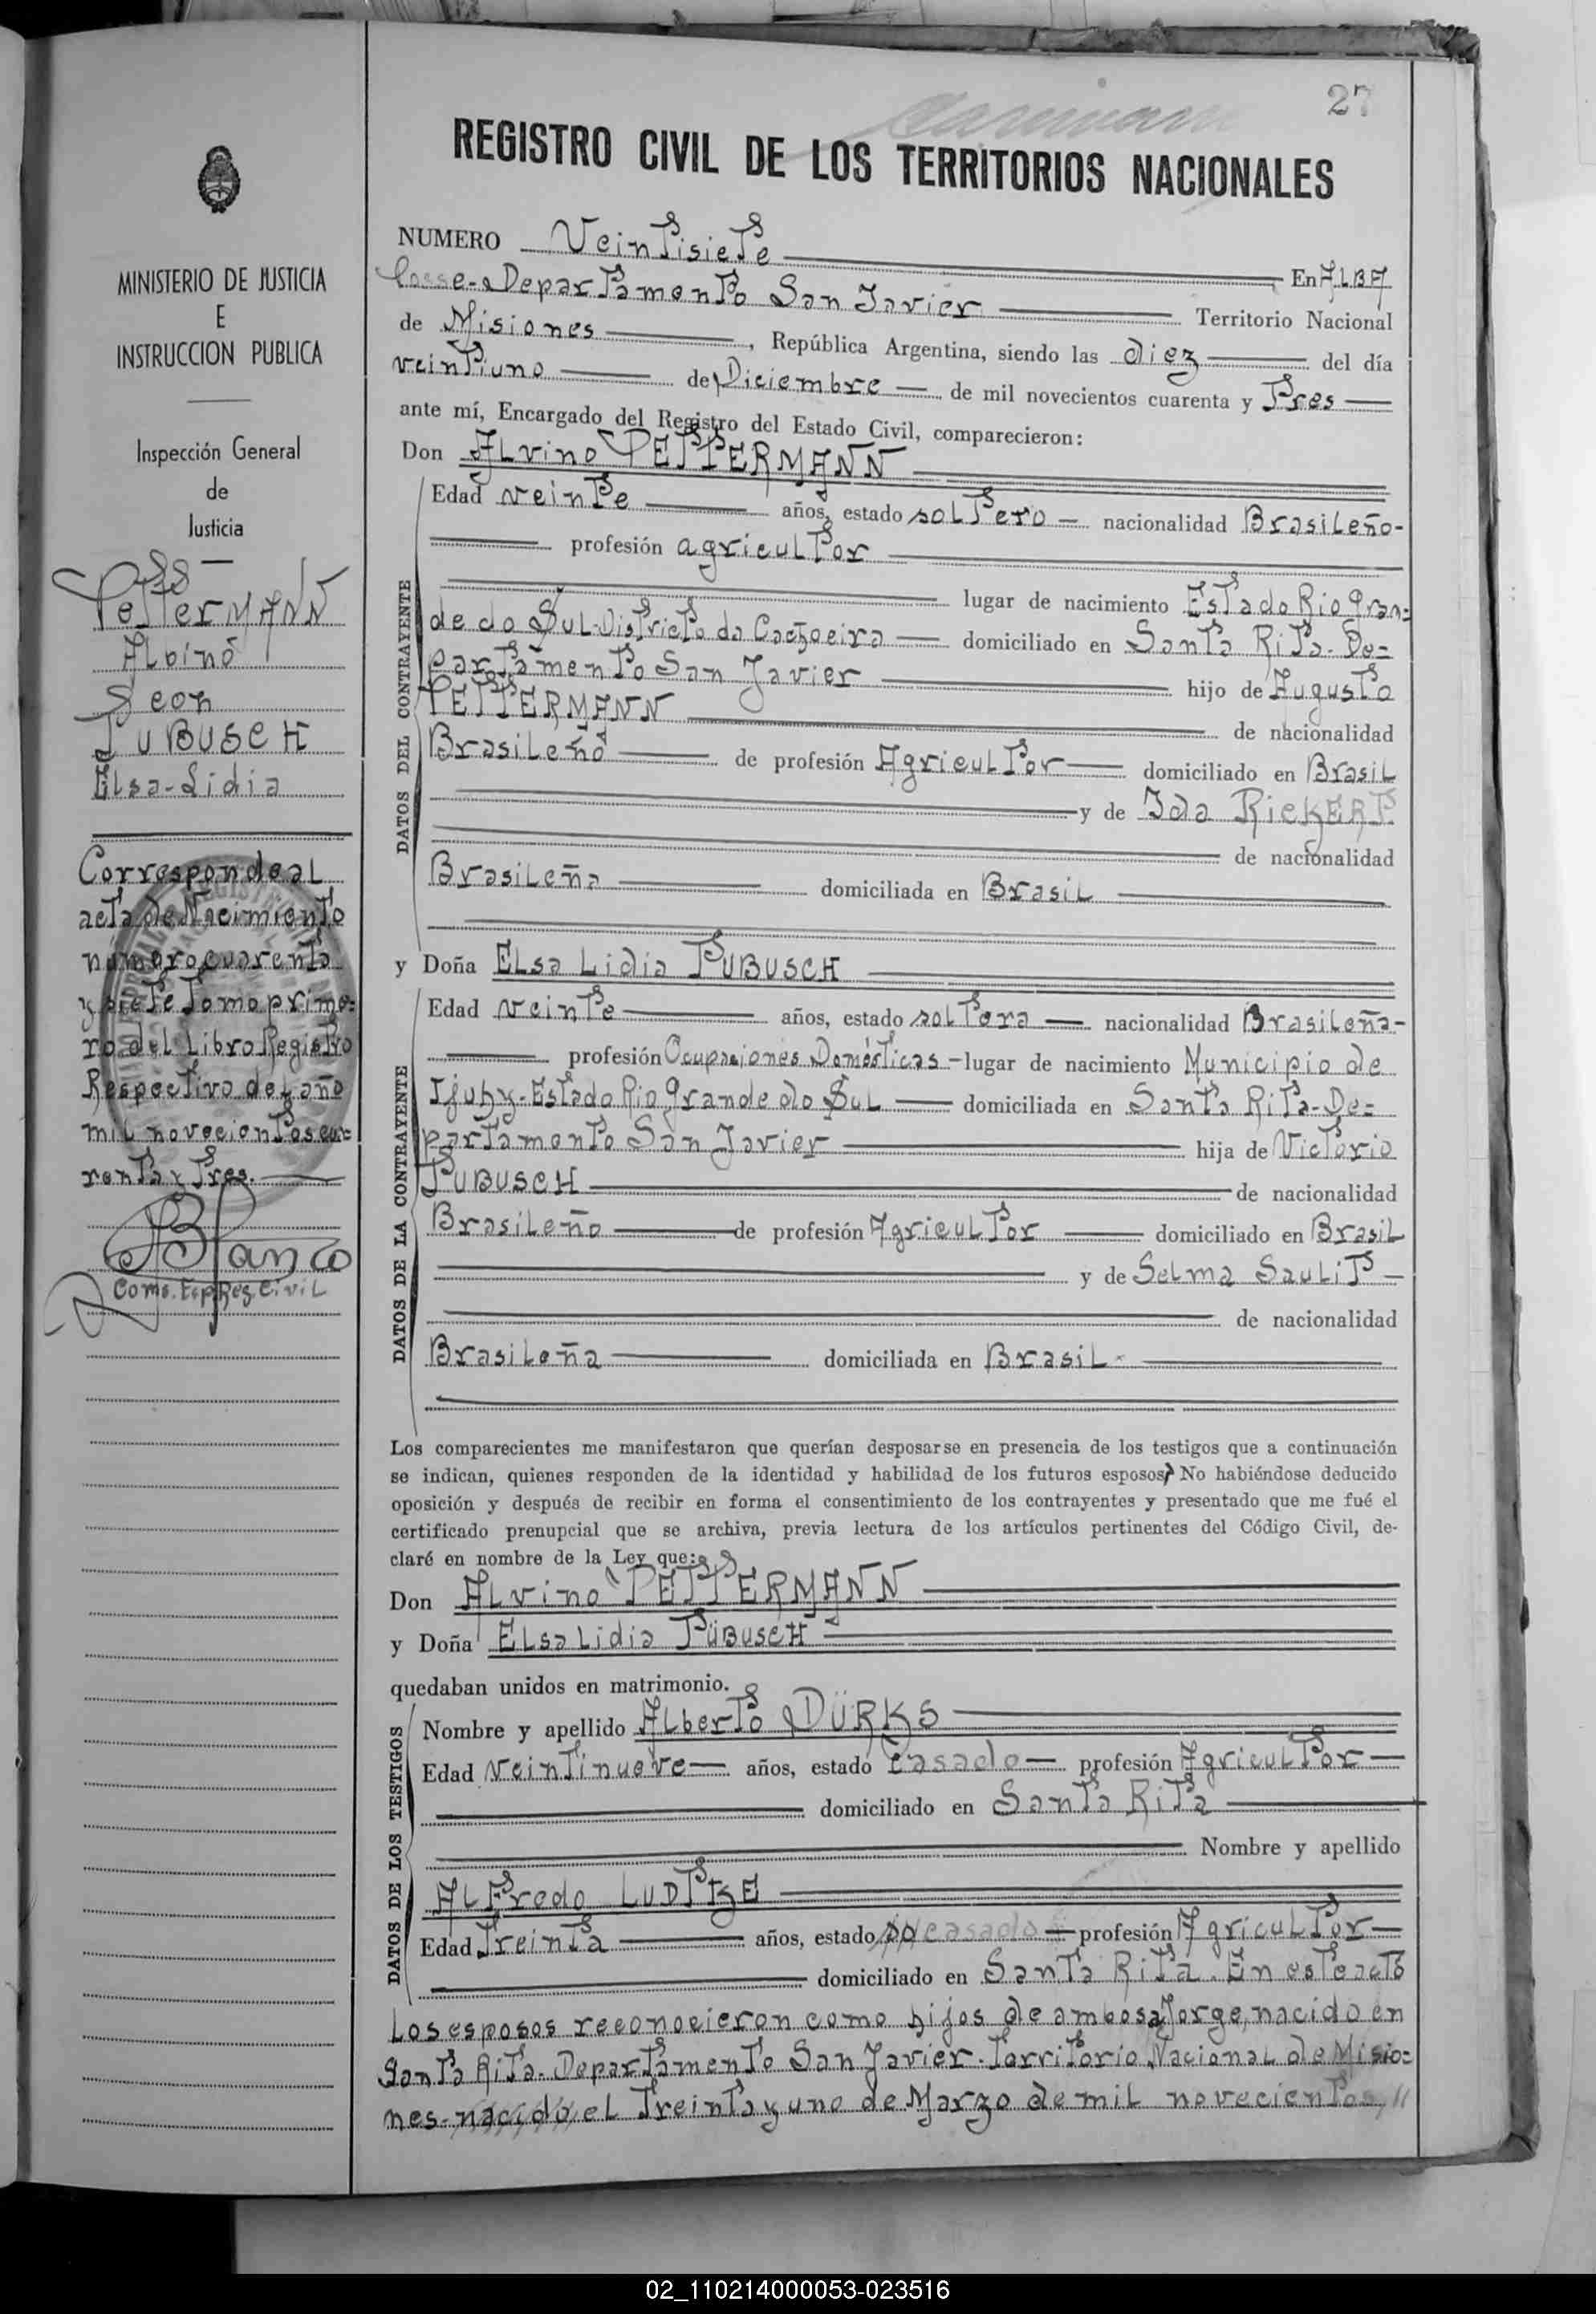 27
REGISTRO CIVIL DE LOS TERRITORIOS NACIONALES
NUMERO Veintisiete En ALBA
Posse-Departamento San Javier Territorio Nacional
de Misiones, República Argentina, siendo las diez del día
veintiuno de Diciembre de mil novecientos cuarenta y Tres
ante mí, Encargado del Registro del Estado Civil, comparecieron:
Don ALvino PETTERMANN
Edad veinte años, estado soltero nacionalidad Brasileño-
profesión agricultor
lugar de nacimiento Estado Rio Gran=
de do Sul-Districto da Cachoeira domiciliado en Santa Rita-De=
partamento San Javier hijo de Augusto
PETTERMANN de nacionalidad
Brasileño de profesión Agricultor domiciliado en Brasil
y de Ida RickERT
de nacionalidad
Brasileña domiciliada en Brasil
y Doña ELsa Lidia TUBUSCH
Edad veinte años, estado soltera nacionalidad Brasileña-
profesión Ocupaciones Domésticas-lugar de nacimiento Municipio de
Ijuhy-Estado Rio Grande do Sul domiciliada en Santa Rita-De=
partamento San Javier hija de Victorio
TUBUSCH de nacionalidad
Brasileño de profesión Agricultor domiciliado en Brasil
y de Selma Saulit
de nacionalidad
Brasileña domiciliada en Brasil
Los comparecientes me manifestaron que querían desposarse en presencia de los testigos que a continuación
se indican, quienes responden de la identidad y habilidad de los futuros esposos, No habiéndose deducido
oposición y después de recibir en forma el consentimiento de los contrayentes y presentado que me fué el
certificado prenupcial que se archiva, previa lectura de los artículos pertinentes del Código Civil, de-
claré en nombre de la Ley que:
Don ALvino PETTERMANN
y Doña ELsa Lidia TÜBUSCH
quedaban unidos en matrimonio.
Nombre y apellido Alberto DÜRKS
Edad veintinueve años, estado casado profesión Agricultor
domiciliado en Santa Rita
Nombre y apellido
ALFredo LUDTKE
Edad Treinta años, estado so casado profesión Agricultor
domiciliado en Santa Rita. En este acto
los esposos reconocieron como hijos de ambos a Jorge, nacido en
Santa Rita-Departamento San Javier-Territorio Nacional de Misio=
nes-nacido el Treinta y uno de Marzo de mil novecientos //
DATOS DEL CONTRAYENTE
DATOS DE LA CONTRAYENTE
DATOS DE LOS TESTIGOS
MINISTERIO DE JUSTICIA
E
INSTRUCCION PUBLICA
Inspección General
de
Justicia
PetterMANN
Albino
con
TuBUSCH
Elsa-Lidia
Corresponde al
acta de Nacimiento
numero cuarenta
y siete Tomo prime=
ro del Libro Registro
Respectivo del año
mil novecientos cua=
renta y Tres.
Blanco
Com. Esp. Reg. Civil
02_110214000053-023516